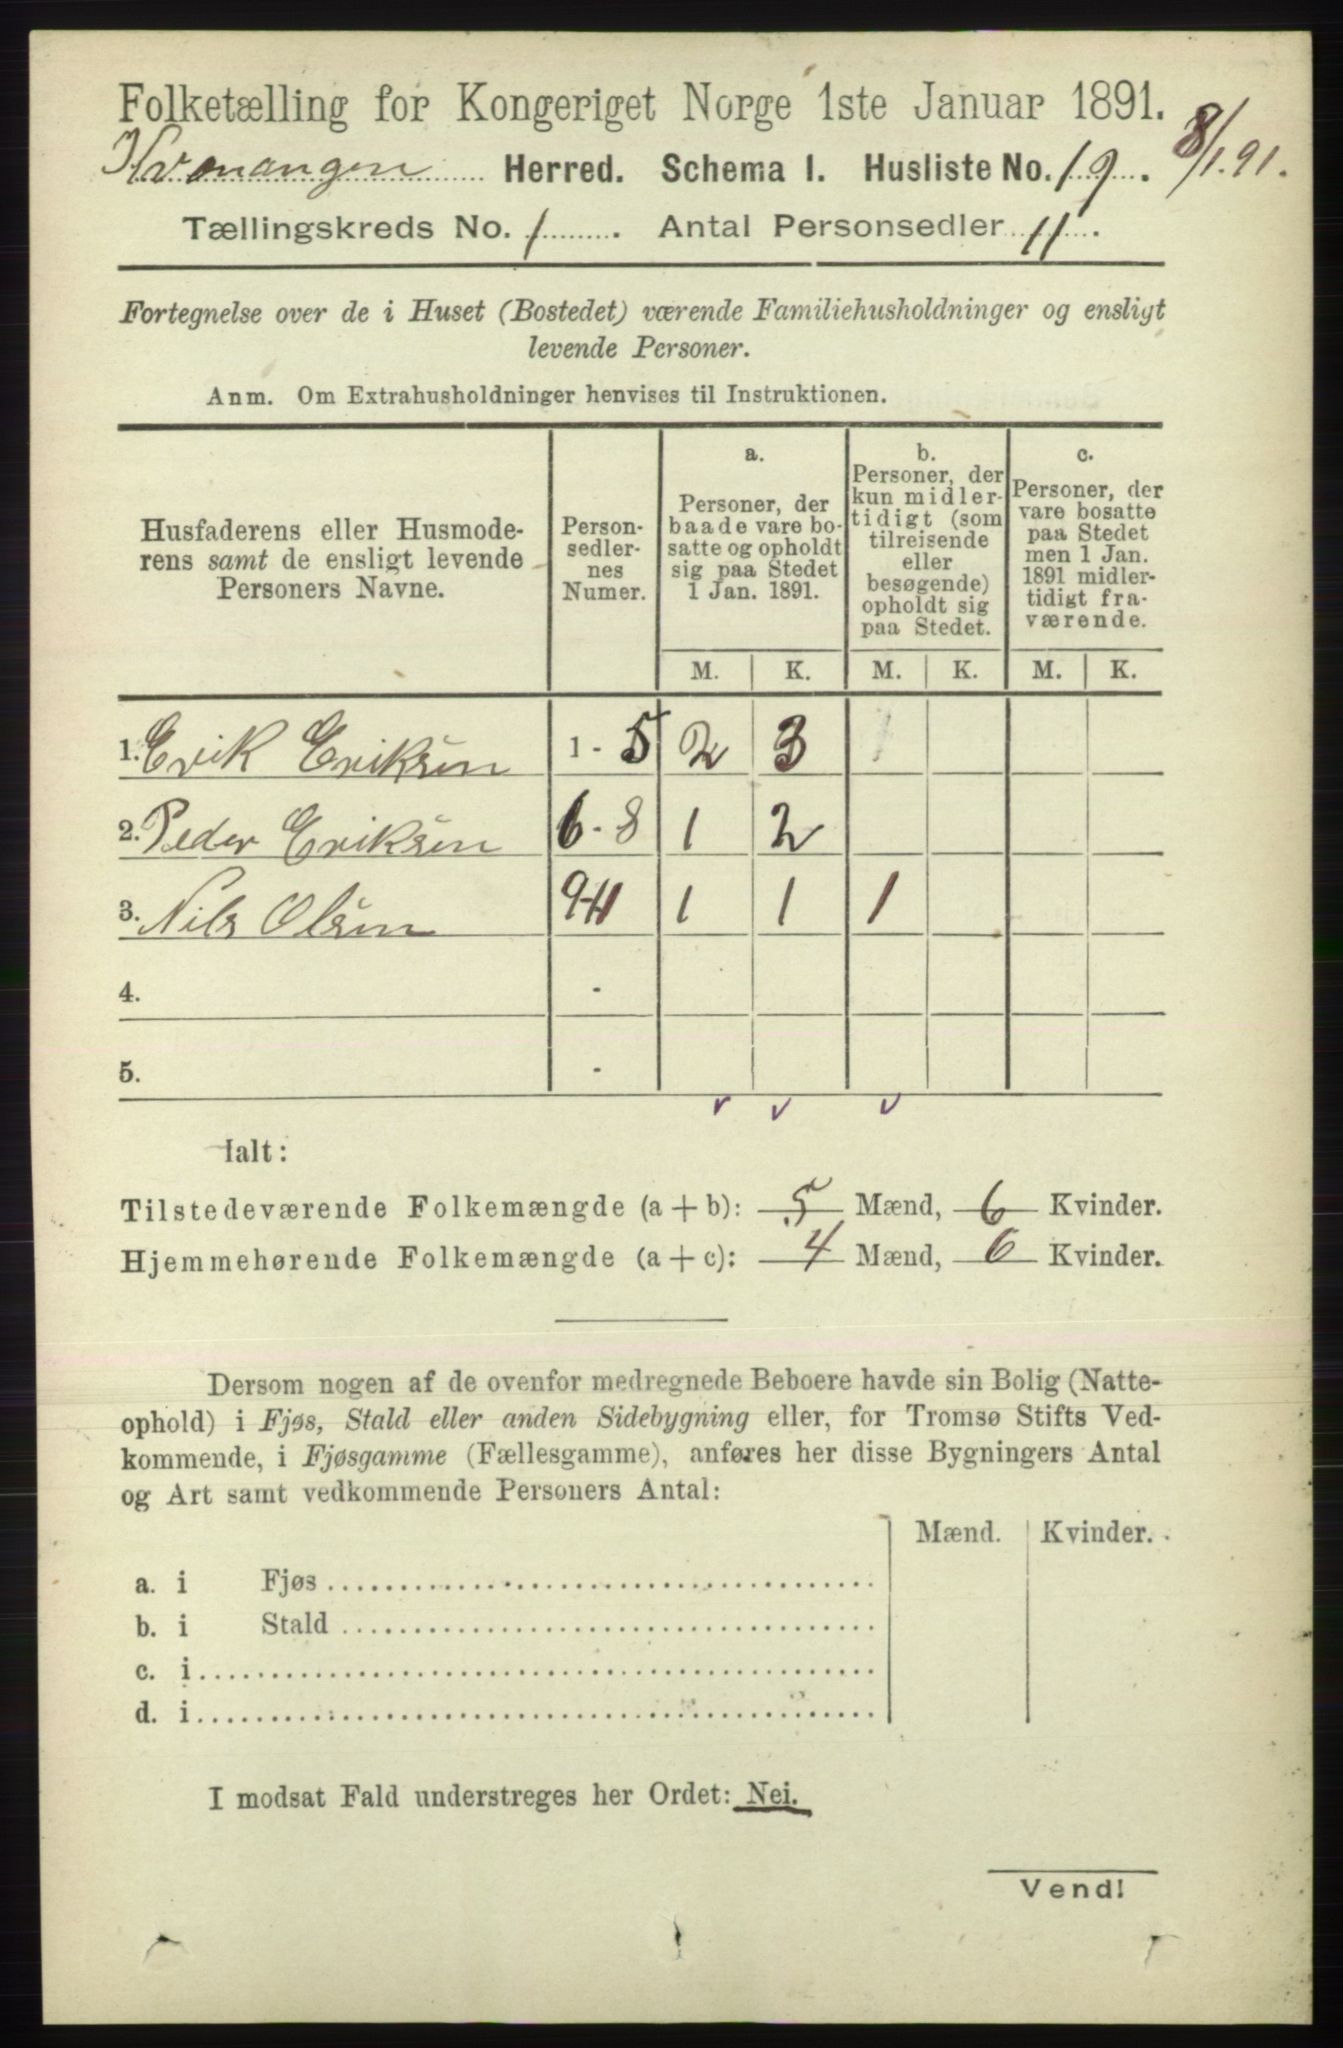 Folketælling for Kongeriget Norge 1ste Januar 1891.
Kvænangen Herred. Schema I. Husliste No. 19. 8/1.91.
Tællingskreds No. 1. Antal Personsedler 11.
Fortegnelse over de i Huset (Bostedet) værende Familiehusholdninger og ensligt
levende Personer.
Anm. Om Extrahusholdninger henvises til Instruktionen.
Husfaderens eller Husmode-
rens samt de ensligt levende
Personers Navne.
Person-
sedler-
nes
Numer.
a.
Personer, der
baade vare bo-
satte og opholdt
sig paa Stedet
1 Jan. 1891.
b.
Personer, der
kun midler-
tidigt (som
tilreisende
eller
besøgende)
opholdt sig
paa Stedet.
c.
Personer, der
vare bosatte
paa Stedet
men 1 Jan.
1891 midler-
tidigt fra-
værende.
M. K. M. K. M. K.
1. Erik Eriksen 1 - 5 2 3 1
2. Peder Eriksen 6 - 8 1 2
3. Nils Olsen 9-11 1 1 1
4. -
5. -
v v v
Ialt:
Tilstedeværende Folkemængde (a + b): 5 Mænd, 6 Kvinder.
Hjemmehørende Folkemængde (a + c): 4 Mænd, 6 Kvinder.
Dersom nogen af de ovenfor medregnede Beboere havde sin Bolig (Natte-
ophold) i Fjøs, Stald eller anden Sidebygning eller, for Tromsø Stifts Ved-
kommende, i Fjøsgamme (Fællesgamme), anføres her disse Bygningers Antal
og Art samt vedkommende Personers Antal:
Mænd. Kvinder.
a. i Fjøs
b. i Stald
c. i
d. i
I modsat Fald understreges her Ordet: Nei.
Vend!